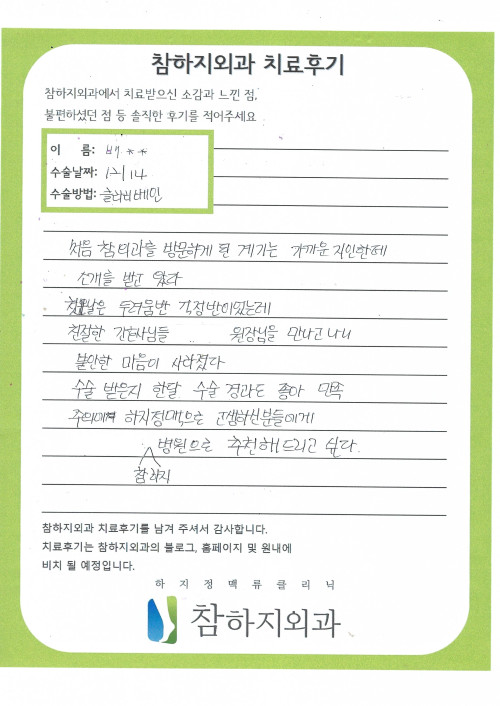 참하지외과 치료후기
참하지외과에서 치료받으신 소감과 느낀 점,
불편하셨던 점 등 솔직한 후기를 적어주세요
이 름: 박 * *
수술날짜: 12/14
수술방법: 클라리베인
처음 참외과를 방문하게 된 계기는 가까운 지인한테
소개를 받고 왔다
첫날은 두려움반 걱정반이있는데
친절한 간호사님들 원장님을 만나고 나니
불안한 마음이 사라졌다
수술 받은지 한달 수술 경과도 좋아 만족
주위에 하지정맥으로 고생하신분들에게
병원으로 추천해드리고 싶다.
참하지
참하지외과 치료후기를 남겨 주셔서 감사합니다.
치료후기는 참하지외과의 블로그, 홈페이지 및 원내에
비치 될 예정입니다.
하지정맥류클리닉
참하지외과